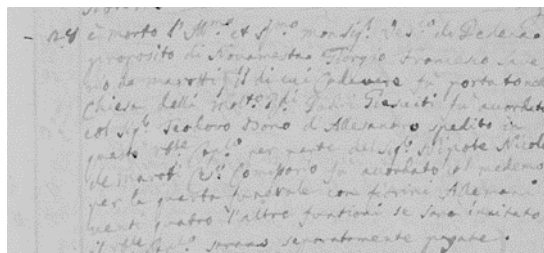 - 28 è morto l'Ill.mo et R.mo monsig.r Vesc.o di Pedena
proposito di Novamesta Giorgio Francesco Save
rio de Marotti, il di cui Cadavere fu portato nella
Chiesa delli molto R.di Padri Gesuiti fu accordato
col Sig.r Teodoro Bono d'Alesandro spedito in
questo per parte del Sig.r Nipote Nicolo
de Maroti Ces.o Comissario fu acordato al medemo
per la quarta funerale con fiorini Alemani
venti quatro l'altre funtioni se sara invitato
il sarano separatamente pagate.